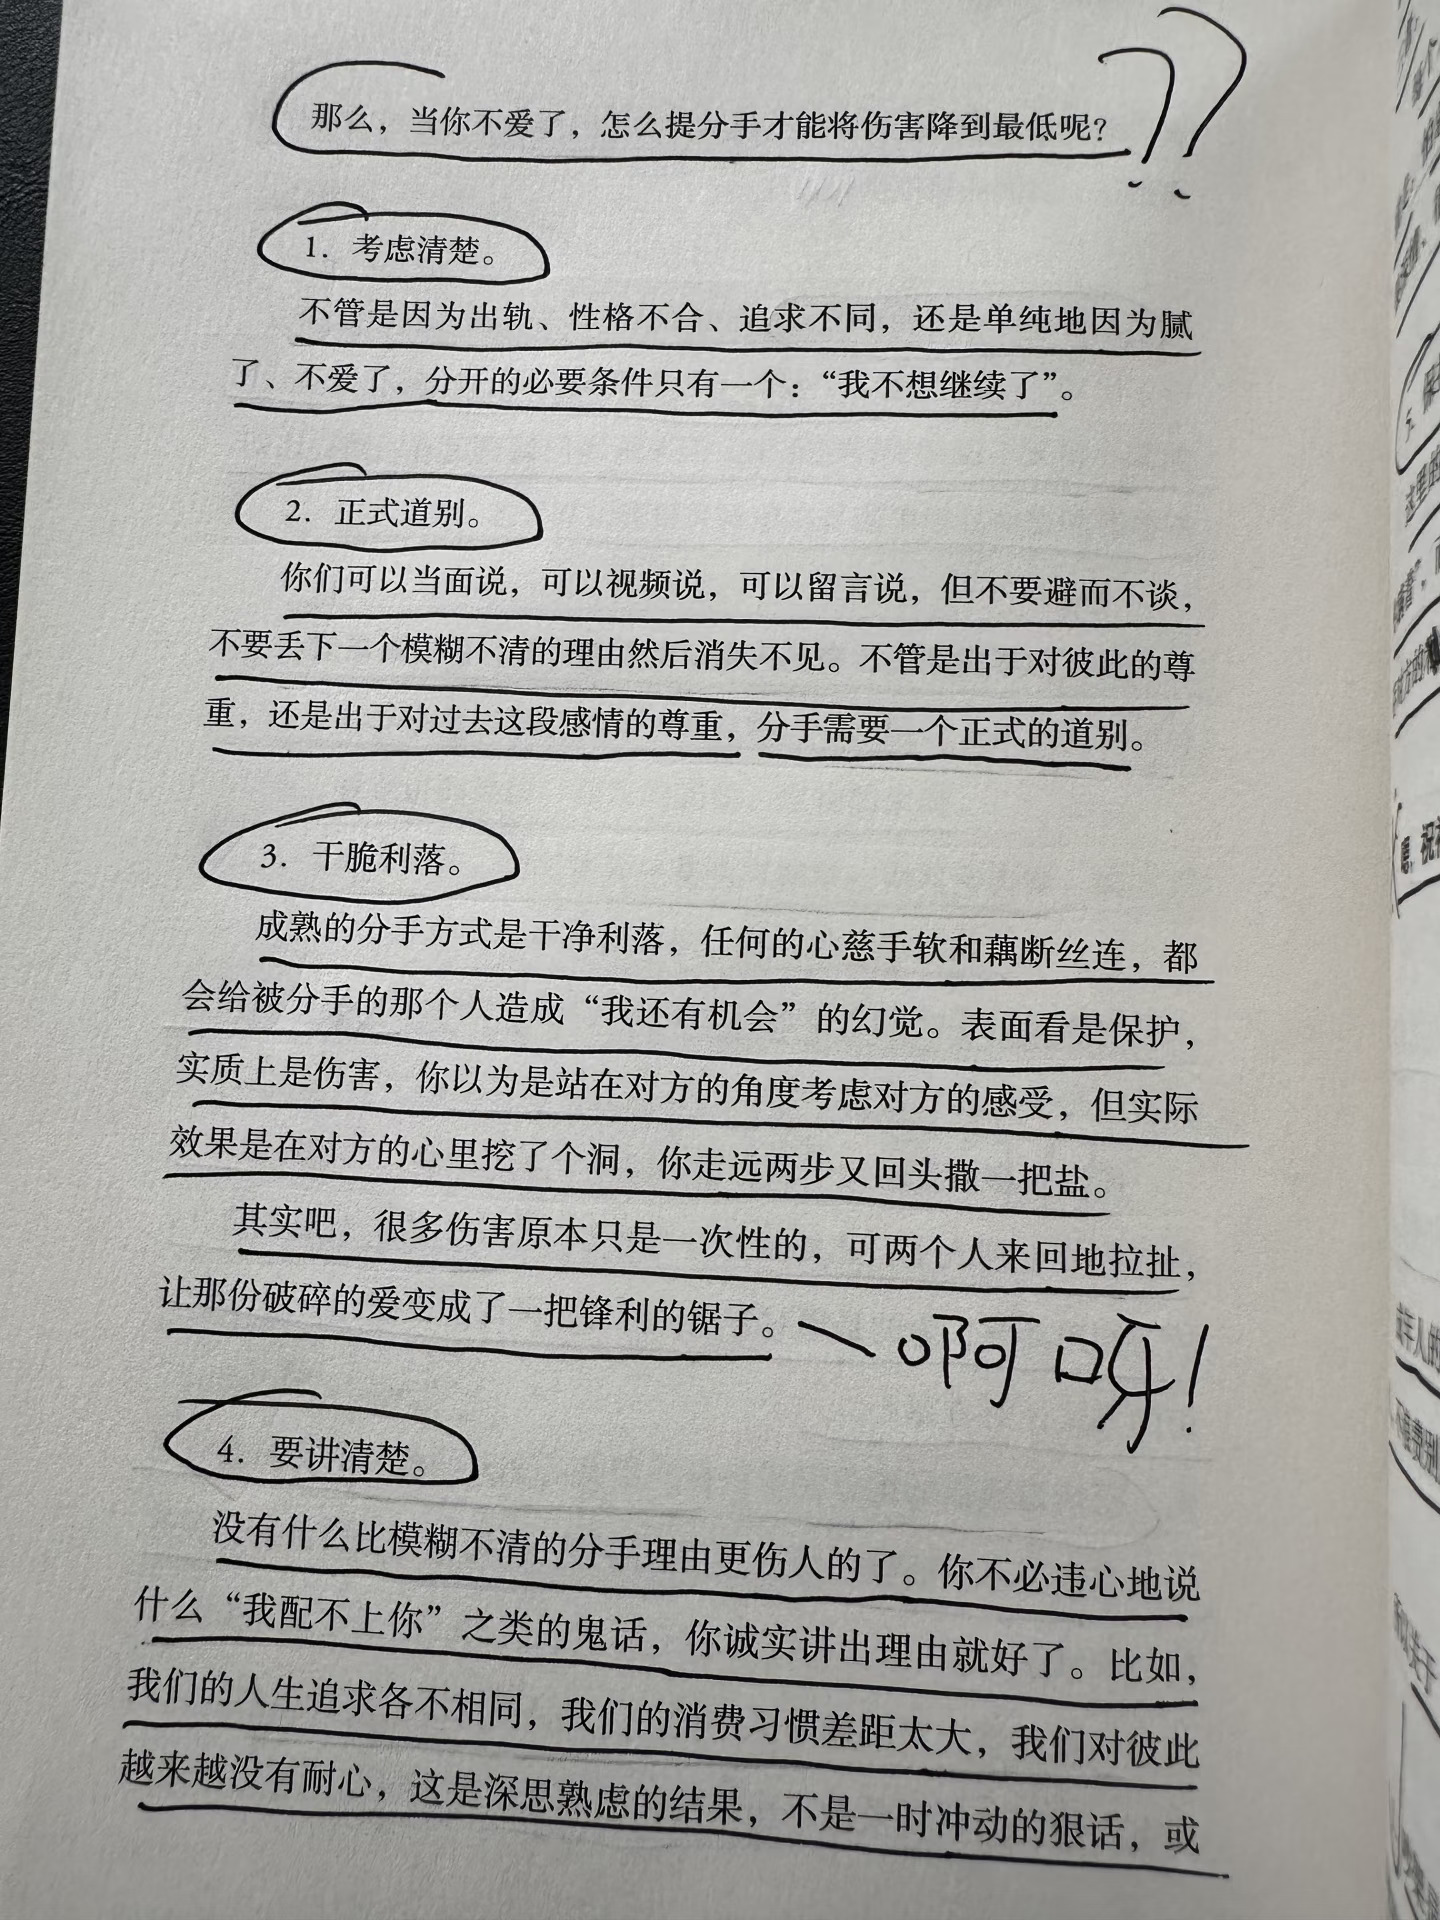 那么，当你不爱了，怎么提分手才能将伤害降到最低呢？??
1. 考虑清楚。
不管是因为出轨、性格不合、追求不同，还是单纯地因为腻
了、不爱了，分开的必要条件只有一个：“我不想继续了”。
2. 正式道别。
你们可以当面说，可以视频说，可以留言说，但不要避而不谈，
不要丢下一个模糊不清的理由然后消失不见。不管是出于对彼此的尊
重，还是出于对过去这段感情的尊重，分手需要一个正式的道别。
3. 干脆利落。
成熟的分手方式是干净利落，任何的心慈手软和藕断丝连，都
会给被分手的那个人造成“我还有机会”的幻觉。表面看是保护，
实质上是伤害，你以为是站在对方的角度考虑对方的感受，但实际
效果是在对方的心里挖了个洞，你走远两步又回头撒一把盐。
其实吧，很多伤害原本只是一次性的，可两个人来回地拉扯，
让那份破碎的爱变成了一把锋利的锯子。
啊呀!
4. 要讲清楚。
没有什么比模糊不清的分手理由更伤人的了。你不必违心地说
什么“我配不上你”之类的鬼话，你诚实讲出理由就好了。比如，
我们的人生追求各不相同，我们的消费习惯差距太大，我们对彼此
越来越没有耐心，这是深思熟虑的结果，不是一时冲动的狠话，或